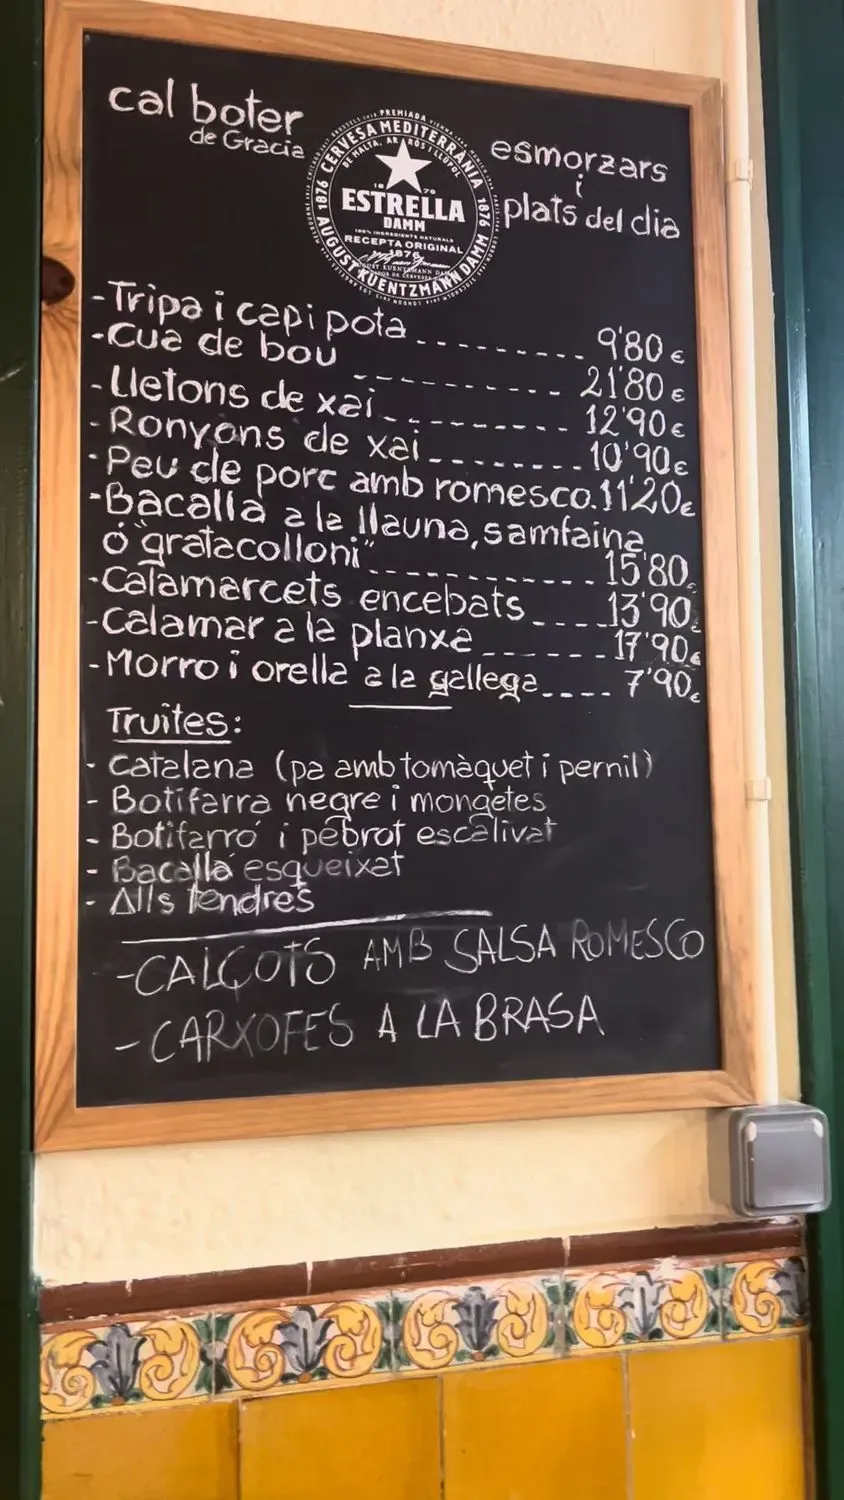 cal boter
de Gracia
PREMIADA
CERVESA MEDITERRÀNIA
DE MALTA, ARRÒS I LLÚPOL
1876
1876
ESTRELLA
DAMM
100% INGREDIENTS NATURALS
RECEPTA ORIGINAL
1876
AUGUST KUENTZMANN DAMM
esmorzars
i
plats del dia
-Tripa i capipota ......... 9'80€
-Cua de bou ---------- 21'80€
-Lletons de xai ......... 12'90€
-Ronyons de xai ........ 10'90€
-Peu de porc amb romesco. 11'20€
-Bacallà a la llauna, samfaina
ó "gratacolloni" ............ 15'80€
-Calamarcets encebats .... 13'90€
-Calamar a la planxa ...... 17'90€
-Morro i orella a la gallega .... 7'90€
Truites:
- Catalana (pa amb tomàquet i pernil)
- Botifarra negre i mongetes
- Botifarró i pebrot escalivat
- Bacallà esqueixat
- Alls tendres
-CALÇOTS AMB SALSA ROMESCO
-CARXOFES A LA BRASA